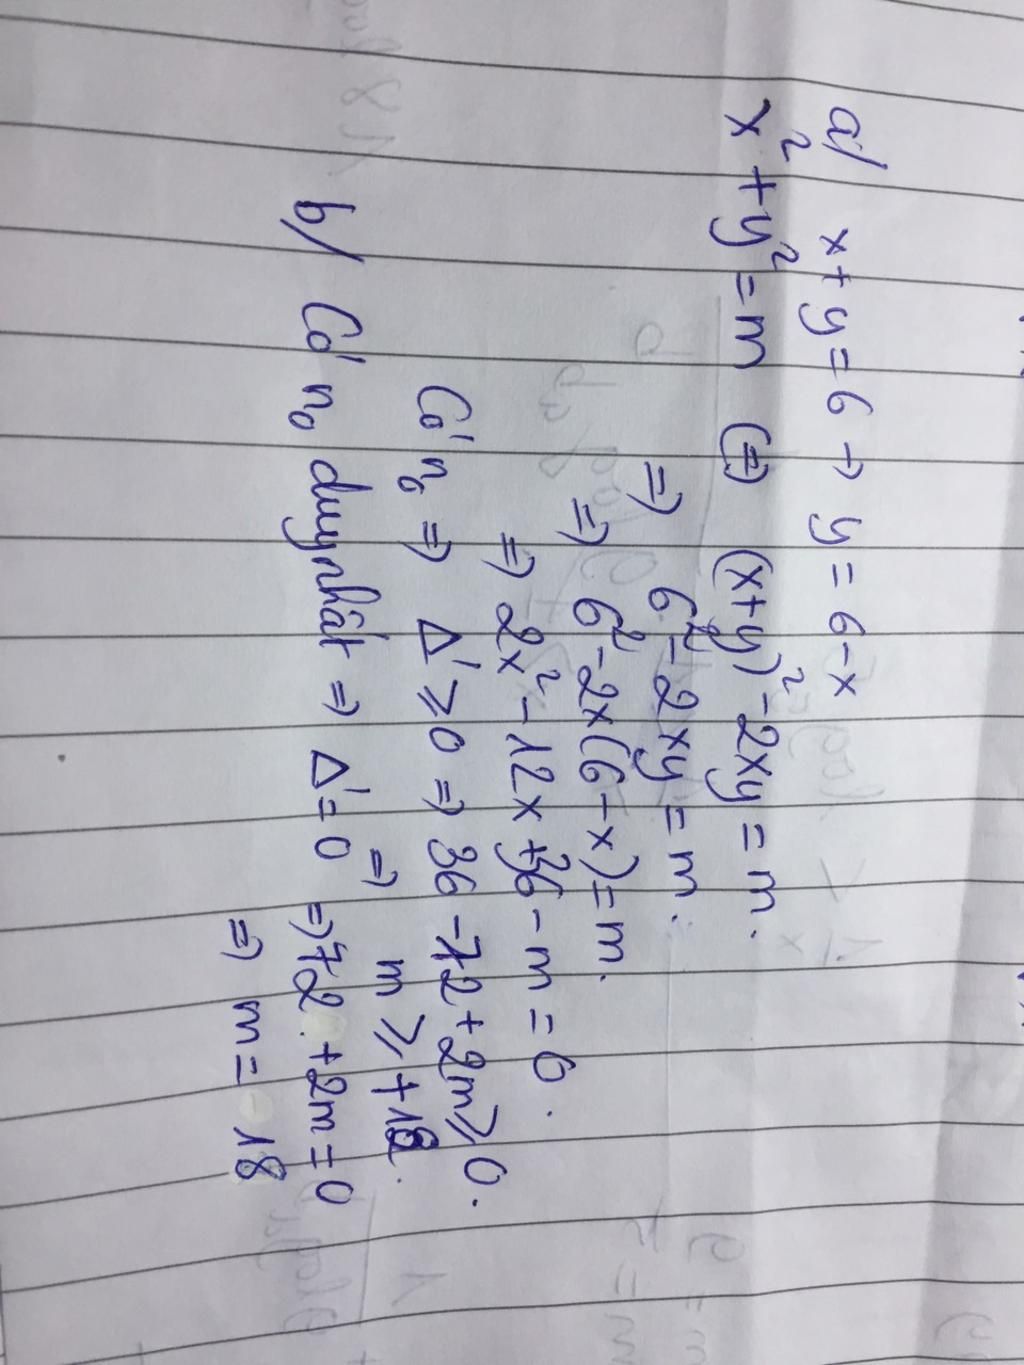 a/ x + y = 6 → y = 6 - x
x² + y² = m (=) (x+y)² - 2xy = m.
=) 6² - 2xy = m.
=) 6² - 2x(6 - x) = m.
=) 2x² - 12x + 36 - m = 0.
Có n₀ =) Δ' ≥ 0 =) 36 - 72 + 2m ≥ 0.
=) m ≥ +18.
b/ Có n₀ duy nhất =) Δ' = 0 =) 72 + 2m = 0
=) m = 18